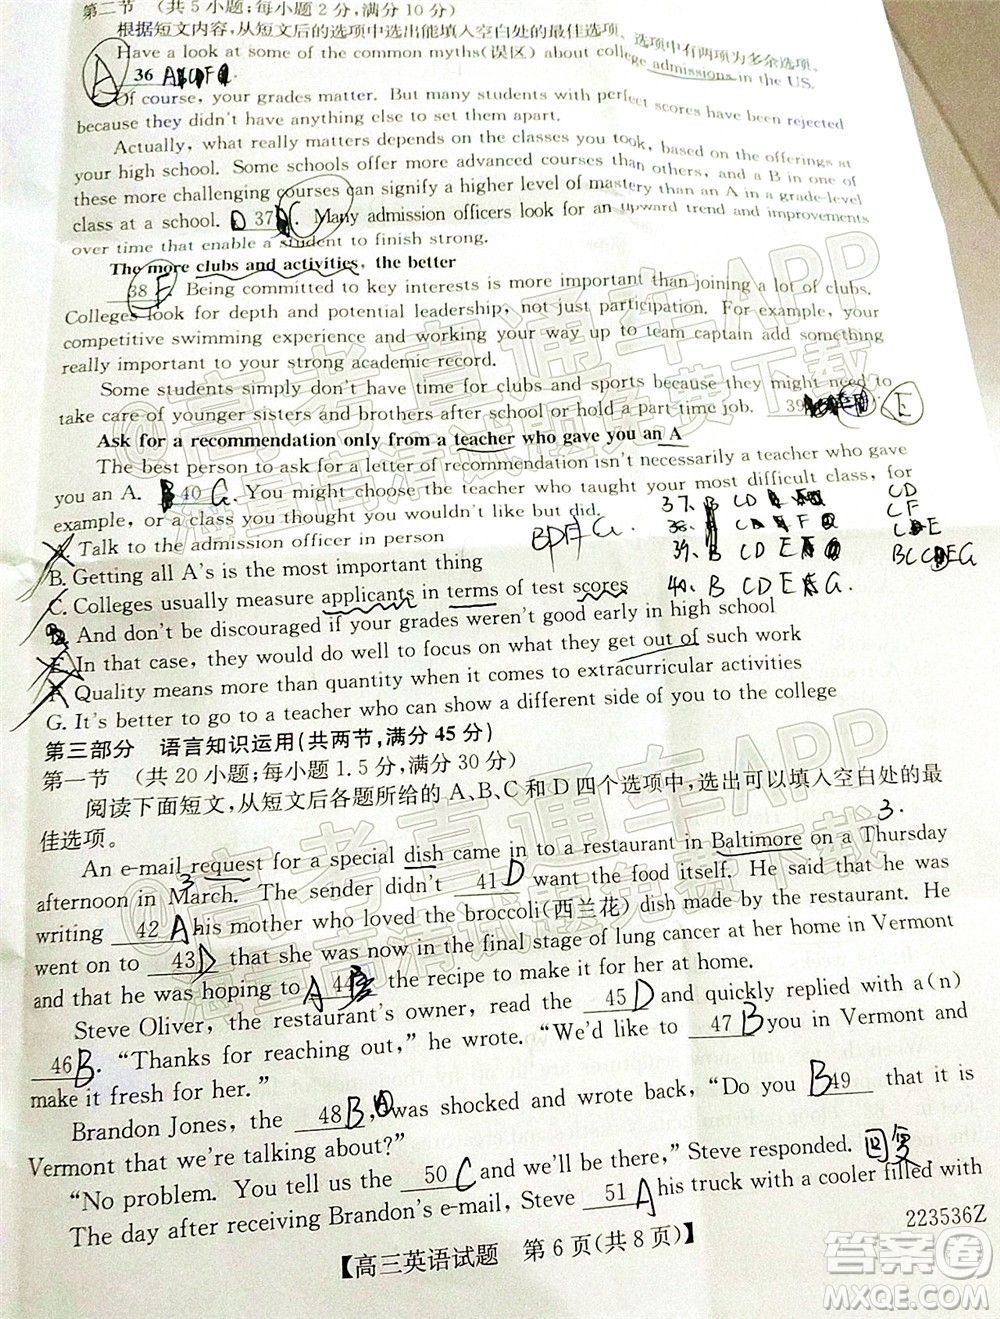 第二节 (共5小题;每小题2分,满分10分)
根据短文内容,从短文后的选项中选出能填入空白处的最佳选项。选项中有两项为多余选项。
Have a look at some of the common myths(误区) about college admissions in the US.
A 36
Of course, your grades matter. But many students with perfect scores have been rejected
because they didn't have anything else to set them apart.
Actually, what really matters depends on the classes you took, based on the offerings at
your high school. Some schools offer more advanced courses than others, and a B in one of
these more challenging courses can signify a higher level of mastery than an A in a grade-level
class at a school. D 37 C. Many admission officers look for an upward trend and improvements
over time that enable a student to finish strong.
The more clubs and activities, the better
38 F. Being committed to key interests is more important than joining a lot of clubs.
Colleges look for depth and potential leadership, not just participation. For example, your
competitive swimming experience and working your way up to team captain add something
really important to your strong academic record.
Some students simply don't have time for clubs and sports because they might need to
take care of younger sisters and brothers after school or hold a part-time job. 39 E
Ask for a recommendation only from a teacher who gave you an A
The best person to ask for a letter of recommendation isn't necessarily a teacher who gave
you an A. 40 G. You might choose the teacher who taught your most difficult class, for
example, or a class you thought you wouldn't like but did.
A. Talk to the admission officer in person
B. Getting all A's is the most important thing
C. Colleges usually measure applicants in terms of test scores
D. And don't be discouraged if your grades weren't good early in high school
E. In that case, they would do well to focus on what they get out of such work
F. Quality means more than quantity when it comes to extracurricular activities
G. It's better to go to a teacher who can show a different side of you to the college
37. B CD
39. B CD E
40. B CD E G.
CD
CF
第三部分 语言知识运用(共两节,满分45分)
第一节 (共20小题;每小题1.5分,满分30分)
阅读下面短文,从短文后各题所给的A、B、C和D四个选项中,选出可以填入空白处的最
佳选项。
3.
An e-mail request for a special dish came in to a restaurant in Baltimore on a Thursday
afternoon in March. The sender didn't 41 D want the food itself. He said he was
3
writing 42 A his mother who loved the broccoli(西兰花) dish made by the restaurant. He
went on to 43 D that she was now in the final stage of lung cancer at her home in Vermont
and that he was hoping to A 44 the recipe to make it for her at home.
Steve Oliver, the restaurant's owner, read the 45 D and quickly replied with a(n)
46 B. "Thanks for reaching out," he wrote. "We'd like to 47 B you in Vermont and
make it fresh for her."
Brandon Jones, the 48 B, was shocked and wrote back, "Do you B 49 that it is
Vermont that we're talking about?"
"No problem. You tell us the 50 C and we'll be there," Steve responded. 回复
The day after receiving Brandon's e-mail, Steve 51 A his truck with a cooler filled with
223536Z
【高三英语试题 第6页(共8页)】
高考直通车APP
海量高清试题免费下载
高考直通车APP
海量高清试题免费下载
答案圈
MXQE.COM